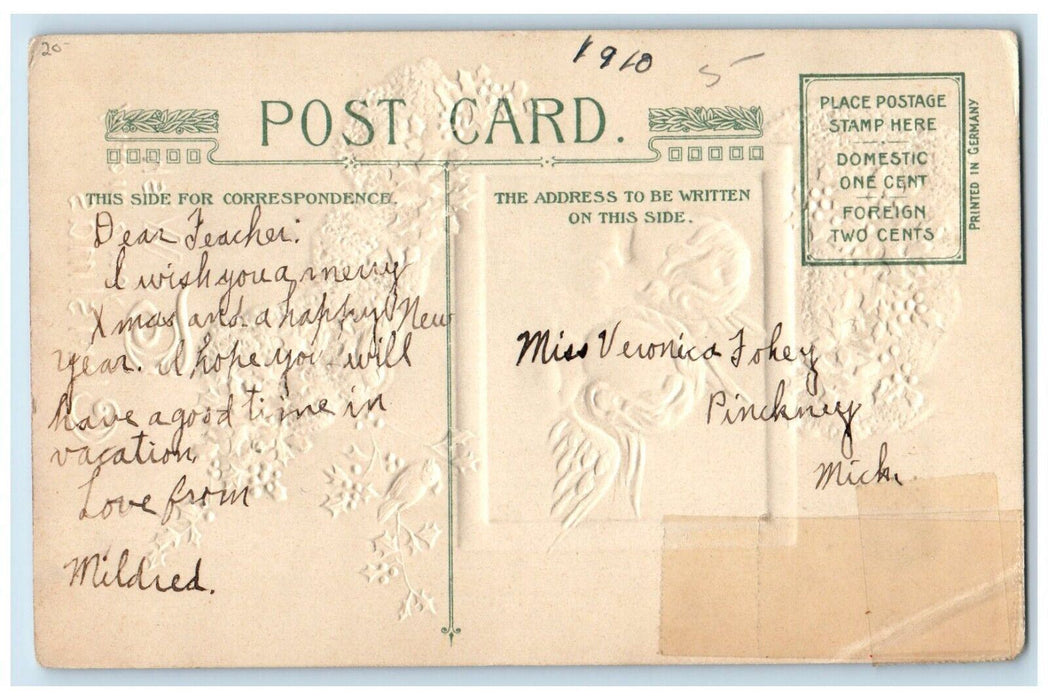 20-
1910
5-
POST CARD.
PLACE POSTAGE
STAMP HERE
DOMESTIC
ONE CENT
FOREIGN
TWO CENTS
PRINTED IN GERMANY
THIS SIDE FOR CORRESPONDENCE.
Dear Teacher:
I wish you a merry
Xmas and a happy New
year. I hope you will
have a good time in
vacation.
Love from
Mildred.
THE ADDRESS TO BE WRITTEN
ON THIS SIDE.
Miss Veronica Fohey
Pinckney
Mich.